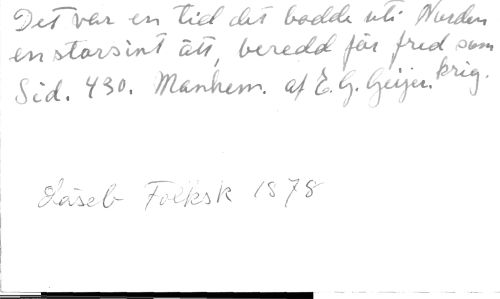 Det var en tid det bodde uti Norden
en storsint ätt, beredd för fred som
krig.
Sid. 430. Manhem. af E. G. Geijer.
Läseb Folksk 1878